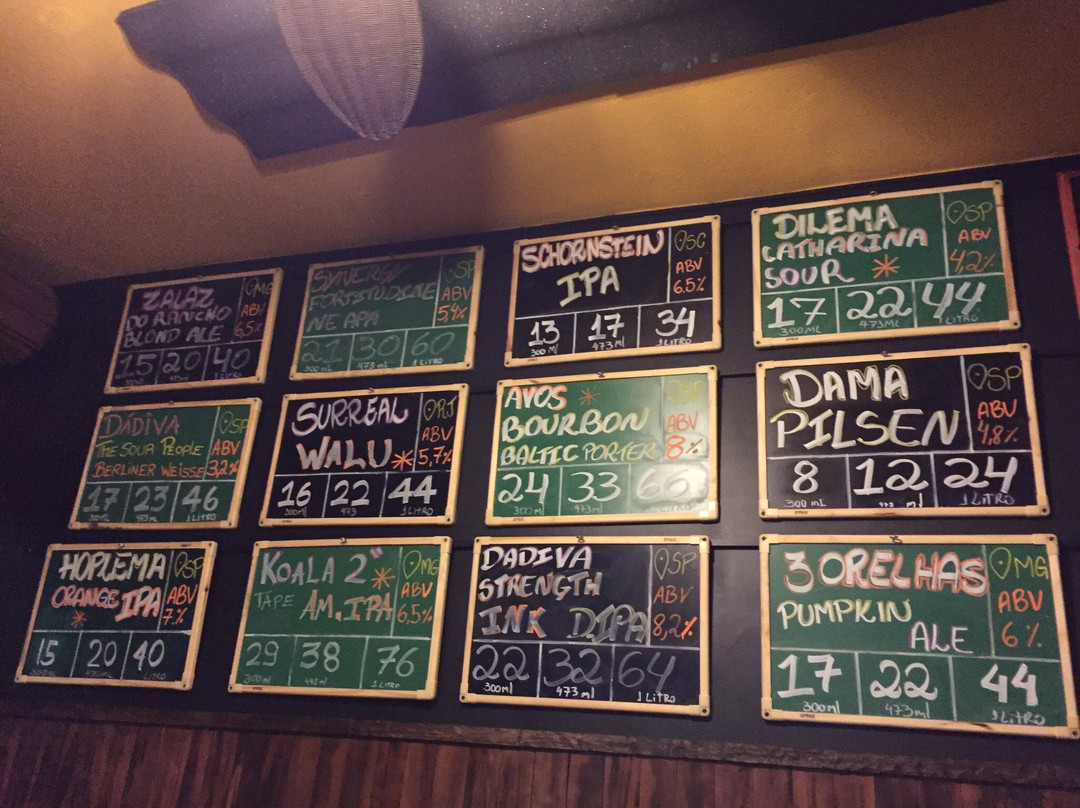 ZALAZ
DO RANCHO
BLOND ALE
MG
ABV
6,5%
15 20 40
1 LITRO
SYNERGY
FORTITUDINE
NE APA
SP
ABV
5,4%
21 30 60
300 ml 473 ml 1 LITRO
SCHORNSTEIN
IPA
SC
ABV
6.5%
13 17 34
300 ml 473 ml 1 LITRO
DILEMA
CATHARINA
SOUR *
SP
ABV
4,2%
17 22 44
300ML 473ML 1 LITRO
DÁDIVA
THE SOUR PEOPLE
BERLINER WEISSE
SP
ABV
3,2%
17 23 46
1 LITRO
SURREAL
WALU *
RJ
ABV
5,7%
16 22 44
300ml 473 1 LITRO
AVÓS *
BOURBON
BALTIC PORTER
SP
ABV
8%
24 33 66
300 ml 473ml 1 LITRO
DAMA
PILSEN
SP
ABV
4,8%
8 12 24
300 ml 473 ml 1 LITRO
HOPLEMA
ORANGE IPA
*
SP
ABV
7%
15 20 40
300ml 473ML LITRO
KOALA 2" *
TAPE AM.IPA
MG
ABV
6,5%
29 38 76
300ml 1 LITRO
DADIVA
STRENGTH
INK DIPA
SP
ABV
8,2%
22 32 64
300ml 473 ml 1 LITRO
3 ORELHAS
PUMPKIN
ALE
MG
ABV
6%
17 22 44
300ml 473ml 1 LITRO